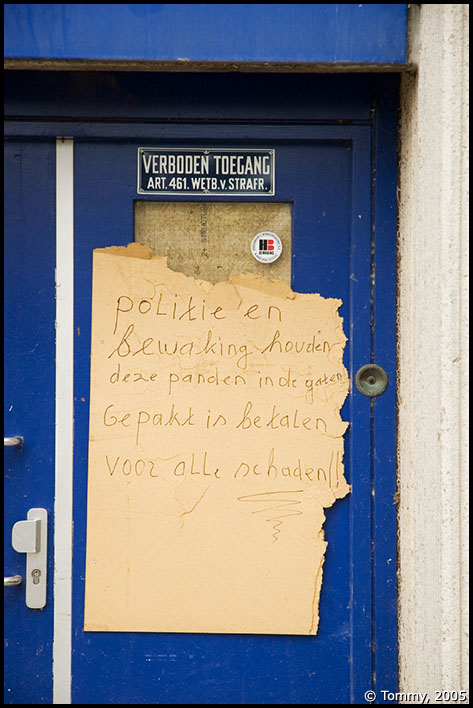 VERBODEN TOEGANG
ART. 461. WETB. v. STRAFR.
HB
BEWAKING
politie en
bewaking houden
deze panden in de gaten
Gepakt is betalen
voor alle schaden!!
© Tommy, 2005